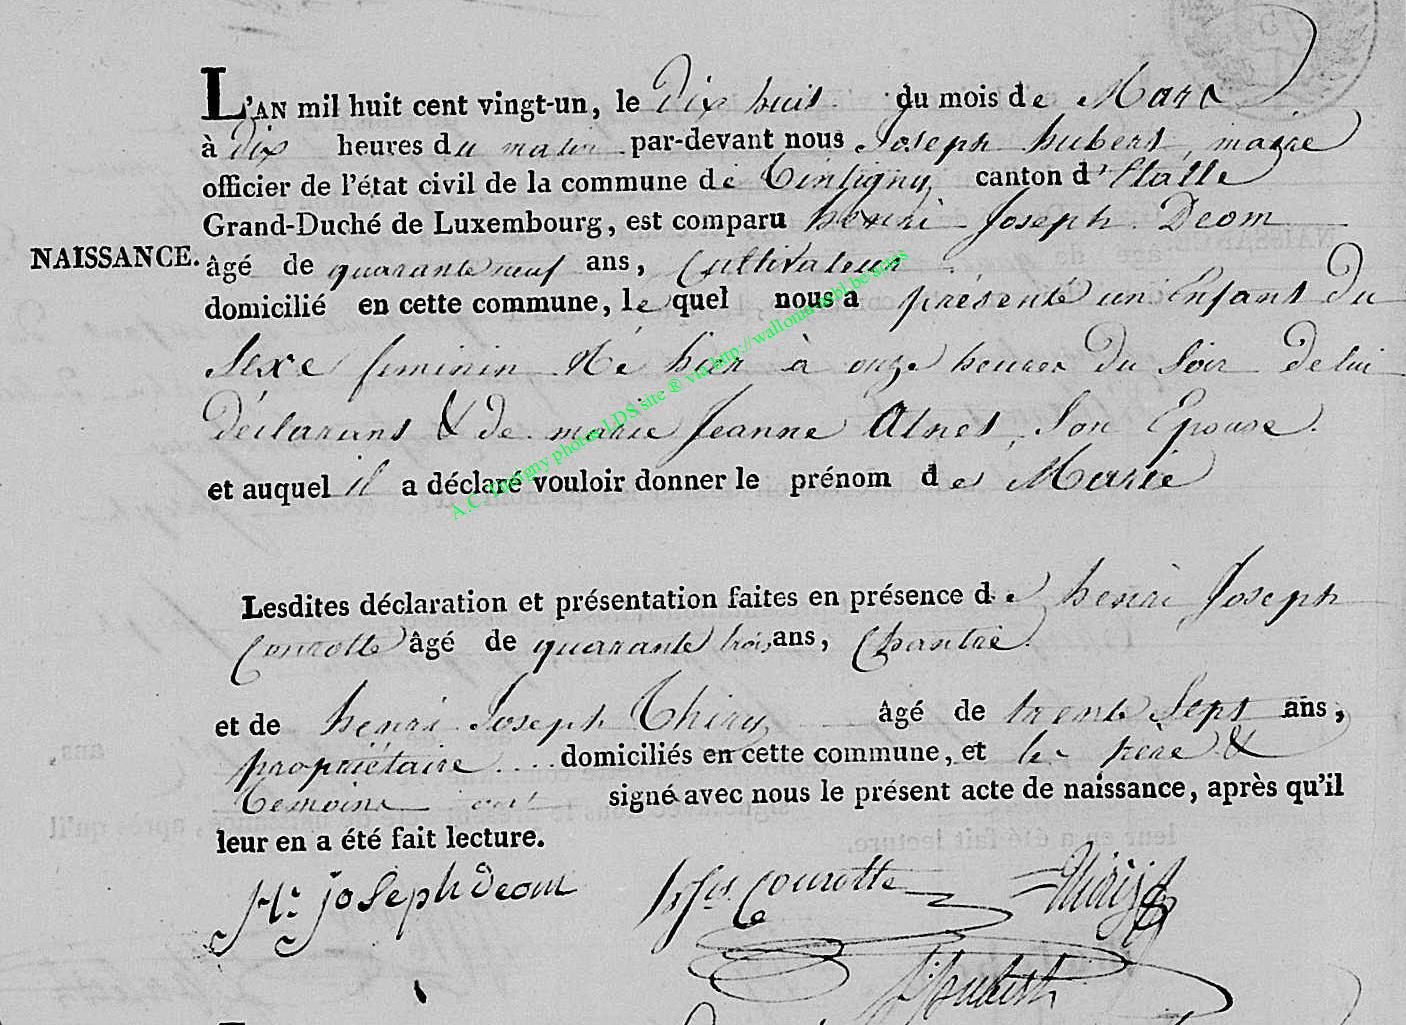 L'AN mil huit cent vingt-un, le dix huit du mois de Mars
à dix heures du matin par-devant nous Joseph hubert, maire
officier de l'état civil de la commune de Tintigny, canton d'Etalle
Grand-Duché de Luxembourg, est comparu henri Joseph Deom
NAISSANCE. âgé de quarante neuf ans, Cultivateur
domicilié en cette commune, le quel nous a présenté un Enfant du
Sexe feminin Né hier à onze heures du Soir de lui
déclarant & de marie Jeanne Son Epouse.
et auquel il a déclaré vouloir donner le prénom de Marie
Lesdites déclaration et présentation faites en présence de henri Joseph
Courotte âgé de quarante trois ans, Chantre.
et de henri Joseph Thiry âgé de trente Sept ans,
propriétaire .... domiciliés en cette commune, et le père &
temoins ont signé avec nous le présent acte de naissance, après qu'il
leur en a été fait lecture.
H: joseph deom Courotte Thiry
Hubert
A.C. Tintigny photos LDS site ® via http://wallonia-asbl.be/actes